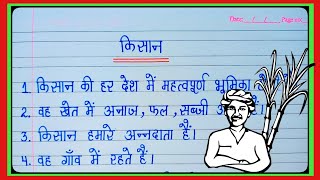 Date: / / Page No.
किसान
1. किसान की हर देश में महत्वपूर्ण भूमिका
2. वह खेत में अनाज, फल, सब्जी
3. किसान हमारे अन्नदाता हैं।
4. वह गाँव में रहते हैं।